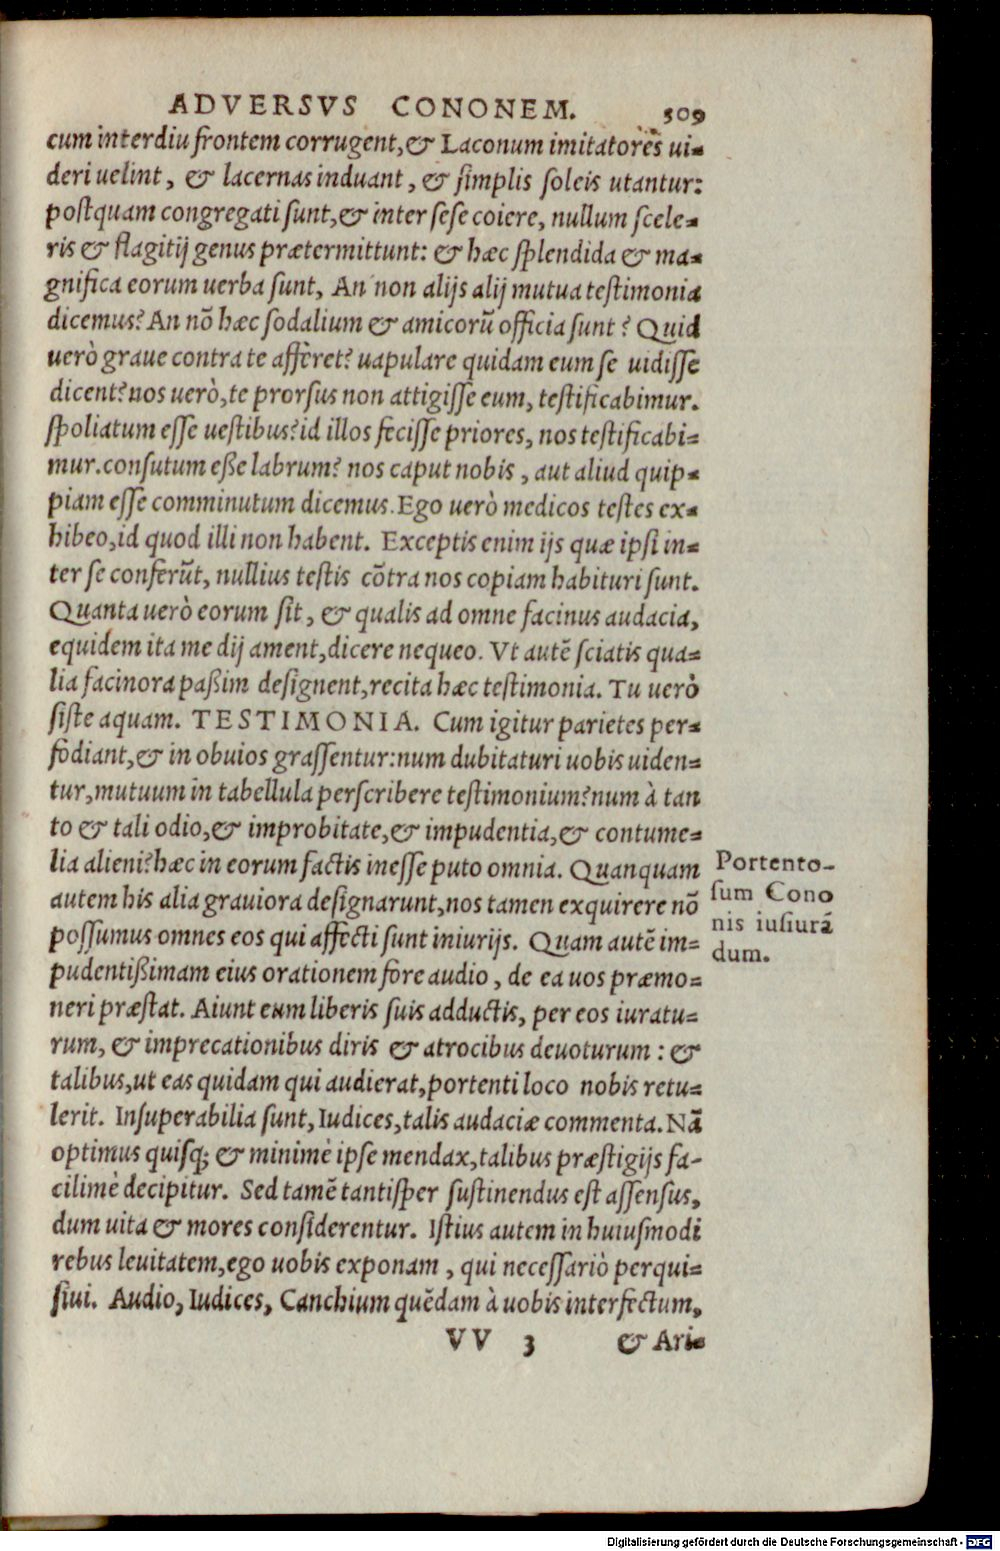 ADVERSVS CONONEM. 509
cum interdiu frontem corrugent,& Laconum imitatores ui-
deri uelint, & lacernas induant, & simplis soleis utantur:
postquam congregati sunt,& inter sese coiere, nullum scele-
ris & flagitij genus prætermittunt: & hæc splendida & ma-
gnifica eorum uerba sunt, An non alijs alij mutua testimonia
dicemus? An nõ hæc sodalium & amicorũ officia sunt? Quid
uerò graue contra te afferet? uapulare quidam eum se uidisse
dicent? nos uerò,te prorsus non attigisse eum, testificabimur.
spoliatum esse uestibus? id illos fecisse priores, nos testificabi-
mur. consutum eße labrum? nos caput nobis, aut aliud quip-
piam esse comminutum dicemus. Ego uerò medicos testes ex-
hibeo,id quod illi non habent. Exceptis enim ijs quæ ipsi in-
ter se conferũt, nullius testis cõtra nos copiam habituri sunt.
Quanta uerò eorum sit, & qualis ad omne facinus audacia,
equidem ita me dij ament,dicere nequeo. Vt autẽ sciatis qua-
lia facinora paßim designent,recita hæc testimonia. Tu uerò
siste aquam. TESTIMONIA. Cum igitur parietes per-
fodiant,& in obuios grassentur: num dubitaturi uobis uiden-
tur,mutuum in tabellula perscribere testimonium? num à tan
to & tali odio,& improbitate,& impudentia,& contume-
lia alieni? hæc in eorum factis inesse puto omnia. Quanquam
autem his alia grauiora designarunt,nos tamen exquirere nõ
possumus omnes eos qui affecti sunt iniurijs. Quam autẽ im-
pudentißimam eius orationem fore audio, de ea uos præmo-
neri præstat. Aiunt eum liberis suis adductis, per eos iuratu-
rum, & imprecationibus diris & atrocibus deuoturum: &
talibus,ut eas quidam qui audierat,portenti loco nobis retu-
lerit. Insuperabilia sunt, Iudices,talis audaciæ commenta. Nã
optimus quisq; & minimè ipse mendax,talibus præstigijs fa-
cilimè decipitur. Sed tamẽ tantisper sustinendus est assensus,
dum uita & mores considerentur. Istius autem in huiusmodi
rebus leuitatem,ego uobis exponam, qui necessariò perqui-
siui. Audio, Iudices, Canchium quẽdam à uobis interfectum,
VV 3 & Ari-
Portento-
sum Cono
nis iusiurã
dum.
Digitalisierung gefördert durch die Deutsche Forschungsgemeinschaft - DFG